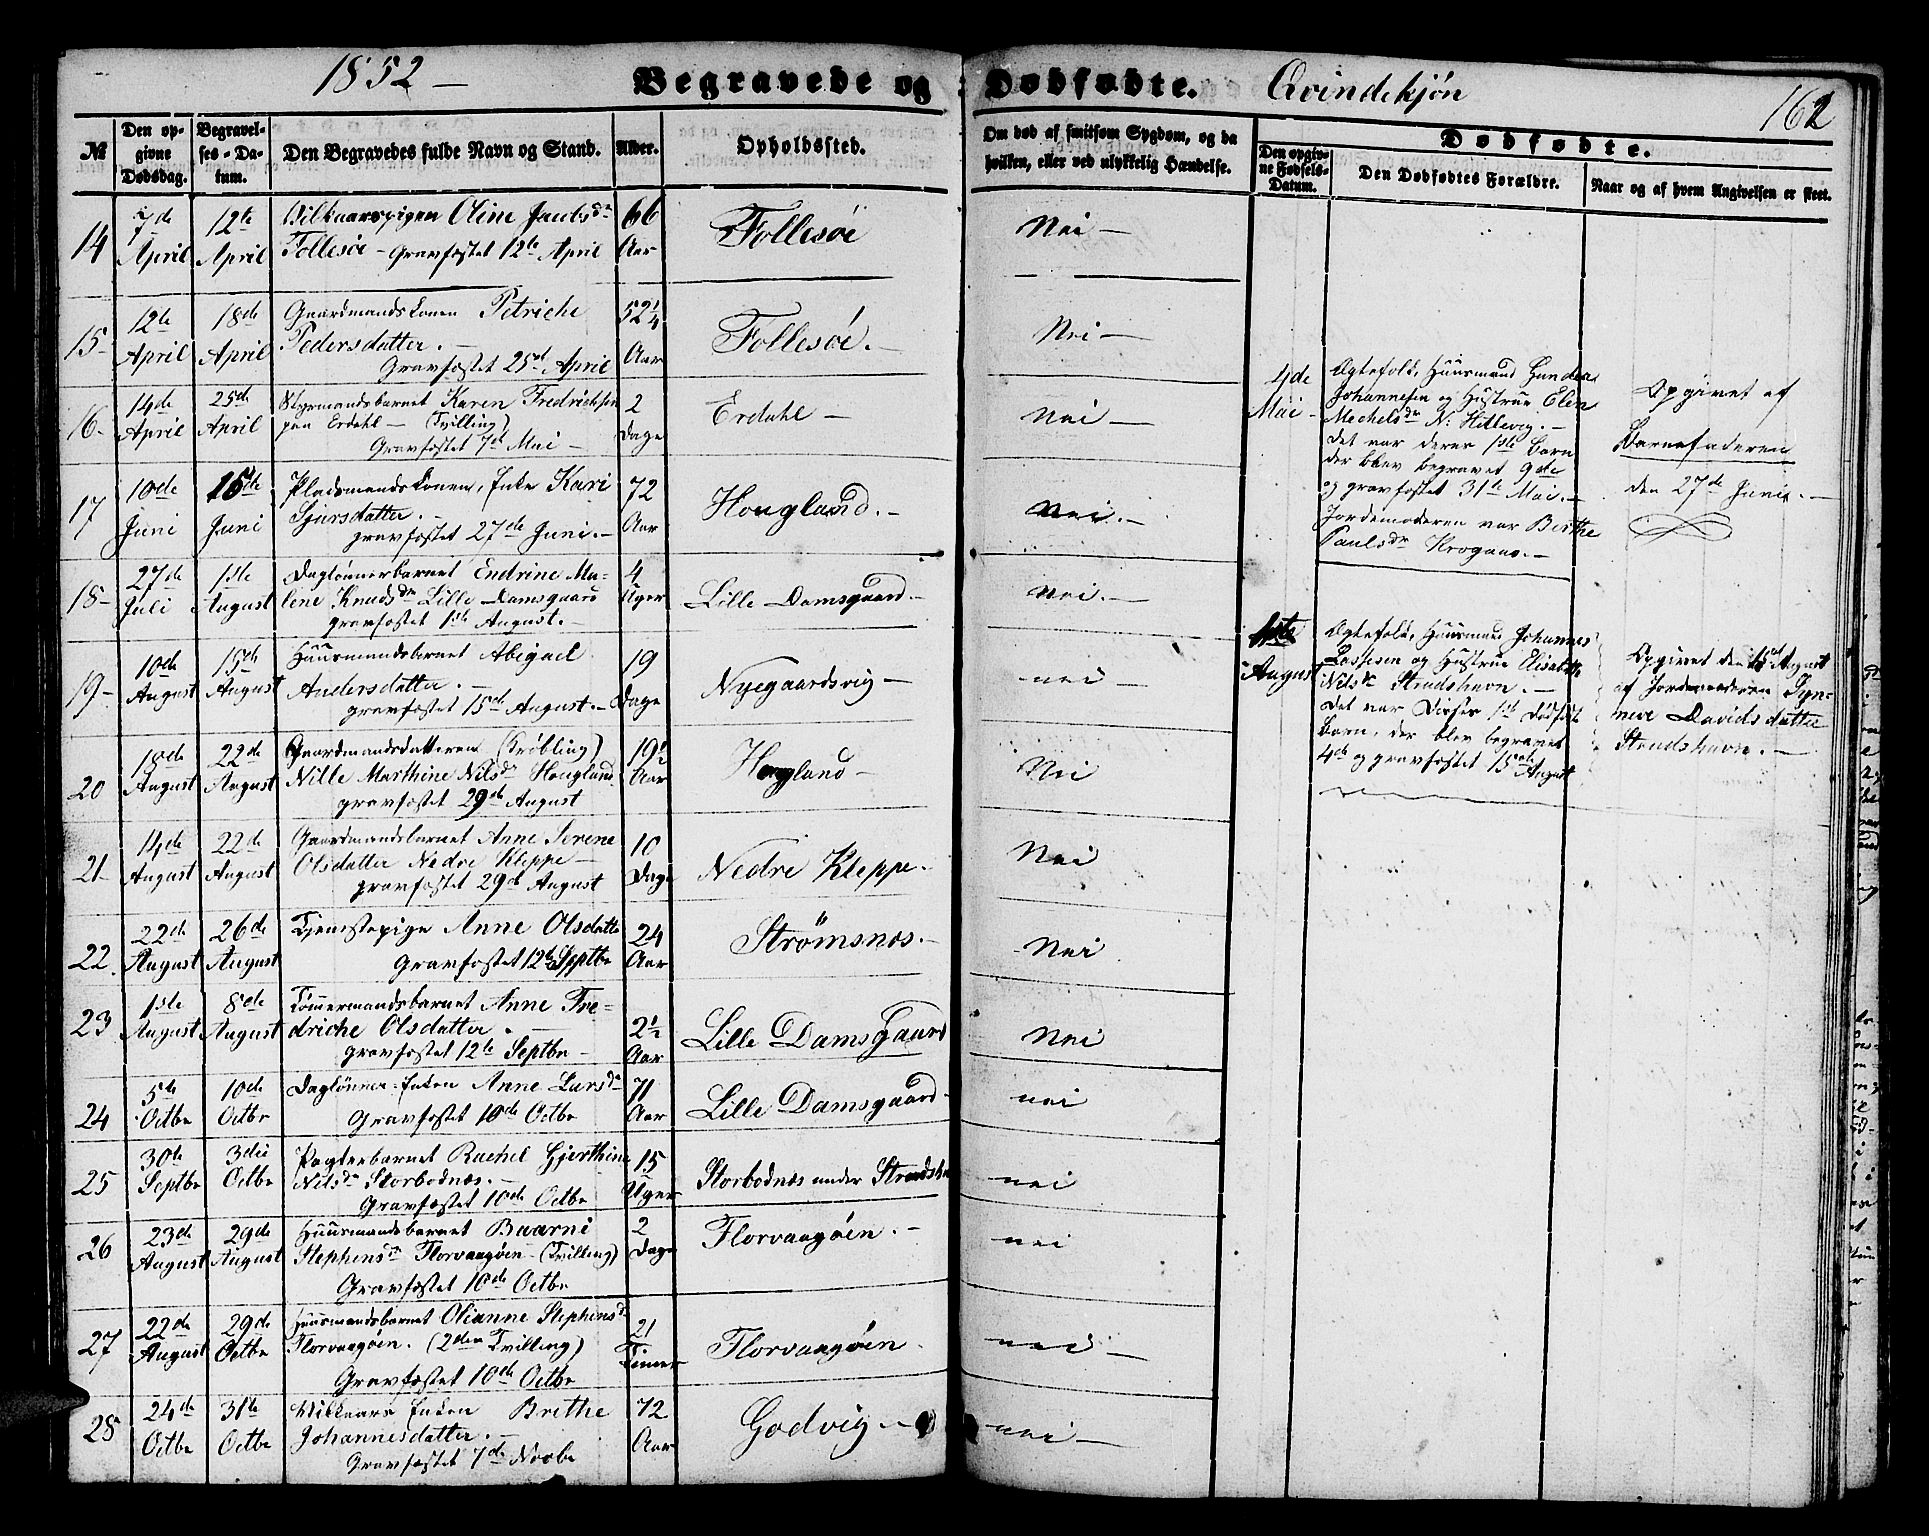 1852 –
Begravede og Dødfødte. Qvindekjøn
162
№
Den opgivne Dødsdag.
Begravelses-Datum.
Den Begravedes fulde Navn og Stand.
Alder.
Opholdssted.
Om død af smitsom Sygdom, og da
hvilken, eller ved ulykkelig Hændelse.
Dødfødte.
Den opgivne Fødsels-Datum.
Den Dødfødtes Forældre.
Naar og af hvem Angivelsen er skeet.
14 7de April 12te April Vilkaarspigen Oline Jacobsdr 66 Aar Follesøe Nei –
Follesøe – Gravfæstet 12te April
15 12te April 18de April Gaardmandskonen Petriche 52¼ Aar Follesøe. Nei –
Pedersdatter. –
Gravfæstet 25de April
16 14de April 25de April Styrmandsbarnet Karen Fredrichsen 2 Dage Erdahl – Nei –
paa Erdahl – (Tvilling)
Gravfæstet 7de Mai –
17 10de Juni 15de Juni Pladsmandskonen, Enke Kari 72 Aar Hougland. – Nei. –
Sjursdatter. –
gravfæstet 27de Juni. –
18 27de Juli 1ste August Daglønnerbarnet Endrine Ma- 4 Uger Lille Damsgaard. – Nei. –
lene Knudsdr Lille Damsgaard
gravfæstet 1ste August. –
19 10de August 15de August Huusmandsbarnet Abigael 19 Dage Nyegaardsvig – nei –
Andersdatter. –
gravfæstet 15de August. –
20 18de August 22de August Gaardmandsdatteren (Trilling) 19½ Aar Hougland – Nei
Nille Marthine Nilsdr Hougland
gravfæstet 29de August
21 14de August 22de August Gaardmandsbarnet Anne Serene 10 Dage Nedre Kleppe. Nei
Olsdatter Nedre Kleppe –
gravfæstet 29de August
22 22de August 26de August Tjenestepige Anne Olsdatter 24 Aar Strømsnæs. – Nei
Gravfæstet 12te Septbr
23 1ste August 8de August Tømmermandsbarnet Anne Fre- 2½ Aar Lille Damsgaard Nei
driche Olsdatter. –
gravfæstet 12te Septbr –
24 5te Octbr 10de Octbr Daglønner-Enken Anne Larsdr 71 Aar Lille Damsgaard – nei
Gravfæstet 10de Octbr
25 30te Septbr 3die Octbr Pagterbarnet Rachel Gjerthine 15 Uger Storbodnæs under Strudshavn nei
Nilsdr Storbodnæs. –
Gravfæstet 10de Octbr
26 23de August 29de August Huusmandsbarnet Baarni 2 Dage Florvaagøen. – nei
Stephensdr Florvaagøen – (Tvilling)
Gravfæstet 10de Octbr
27 22de August 29de Octbr Huusmandsbarnet Olianne Stephensdr 21 Timer Florvaagøen. nei –
Florvaagøen. (2den Tvilling)
Gravfæstet 10de Octbr
28 24de Octbr 31te Octbr Vilkaars Enken Brithe 72 Aar Godvig – nei –
Johannesdatter. –
Gravfæstet 7de Novbr
4de Mai –
Ægtefolk, Huusmand
Johannesen og Hustrue Elen
Mechelsdr N: Hillevig. –
Det var deres 1ste Barn
der blev begravet 9de
og gravfæstet 31te Mai. –
Jordemoderen var Birthe
Paulsdr Krogaas. –
Opgivet af
Barnefaderen
den 27de Juni. –
1ste August
Ægtefolk, Huusmand Johannes
Lassesen og Hustrue Elisabeth
Nilsdr Strudshavn. –
Det var Deres 1ste Dødfødte
Barn, der blev begravet
4de og gravfæstet 15de August
Opgivet den 15de August
af Jordemoderen Syn-
neve Davidsdatter
Strudshavn. –